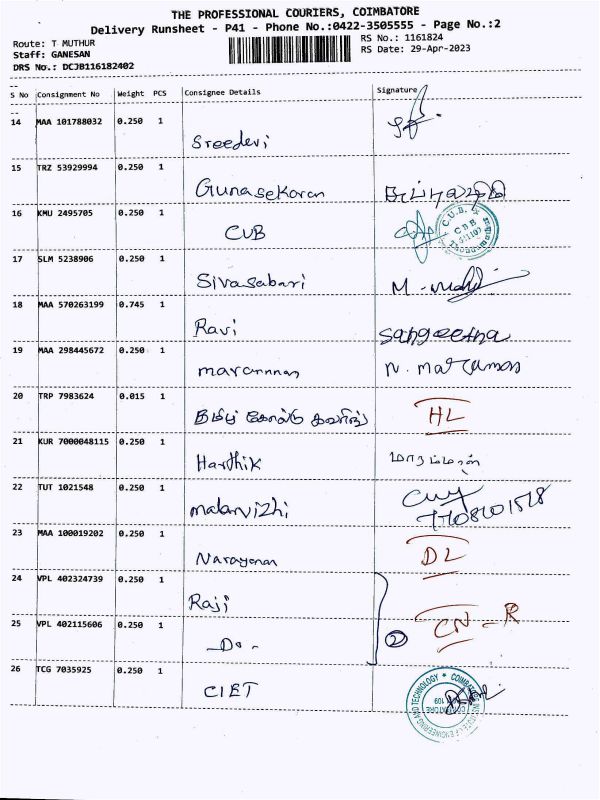 THE PROFESSIONAL COURIERS, COIMBATORE
Delivery Runsheet - P41 - Phone No.:0422-3505555 - Page No.:2
Route: T MUTHUR
RS No.: 1161824
Staff: GANESAN
RS Date: 29-Apr-2023
DRS No.: DCJB116182402
S No Consignment No Weight PCS Consignee Details Signature
14 MAA 101788032 0.250 1
Sreedevi
15 TRZ 53929994 0.250 1
Gunasekaran
16 KMU 2495705 0.250 1
CUB
C.U.B.
17 SLM 5238906 0.250 1
Sivasabari M.
18 MAA 570263199 0.745 1
Ravi Sangeetha
19 MAA 298445672 0.250 1
N.
20 TRP 7983624 0.015 1
தமிழ் HL
21 KUR 7000048115 0.250 1
Harthik
22 TUT 1021548 0.250 1
malarvizhi
23 MAA 100019202 0.250 1
Narayanan DL
24 VPL 402324739 0.250 1
Raji
25 VPL 402115606 0.250 1
- Do - 2 CN - R
26 TCG 7035925 0.250 1
CIET